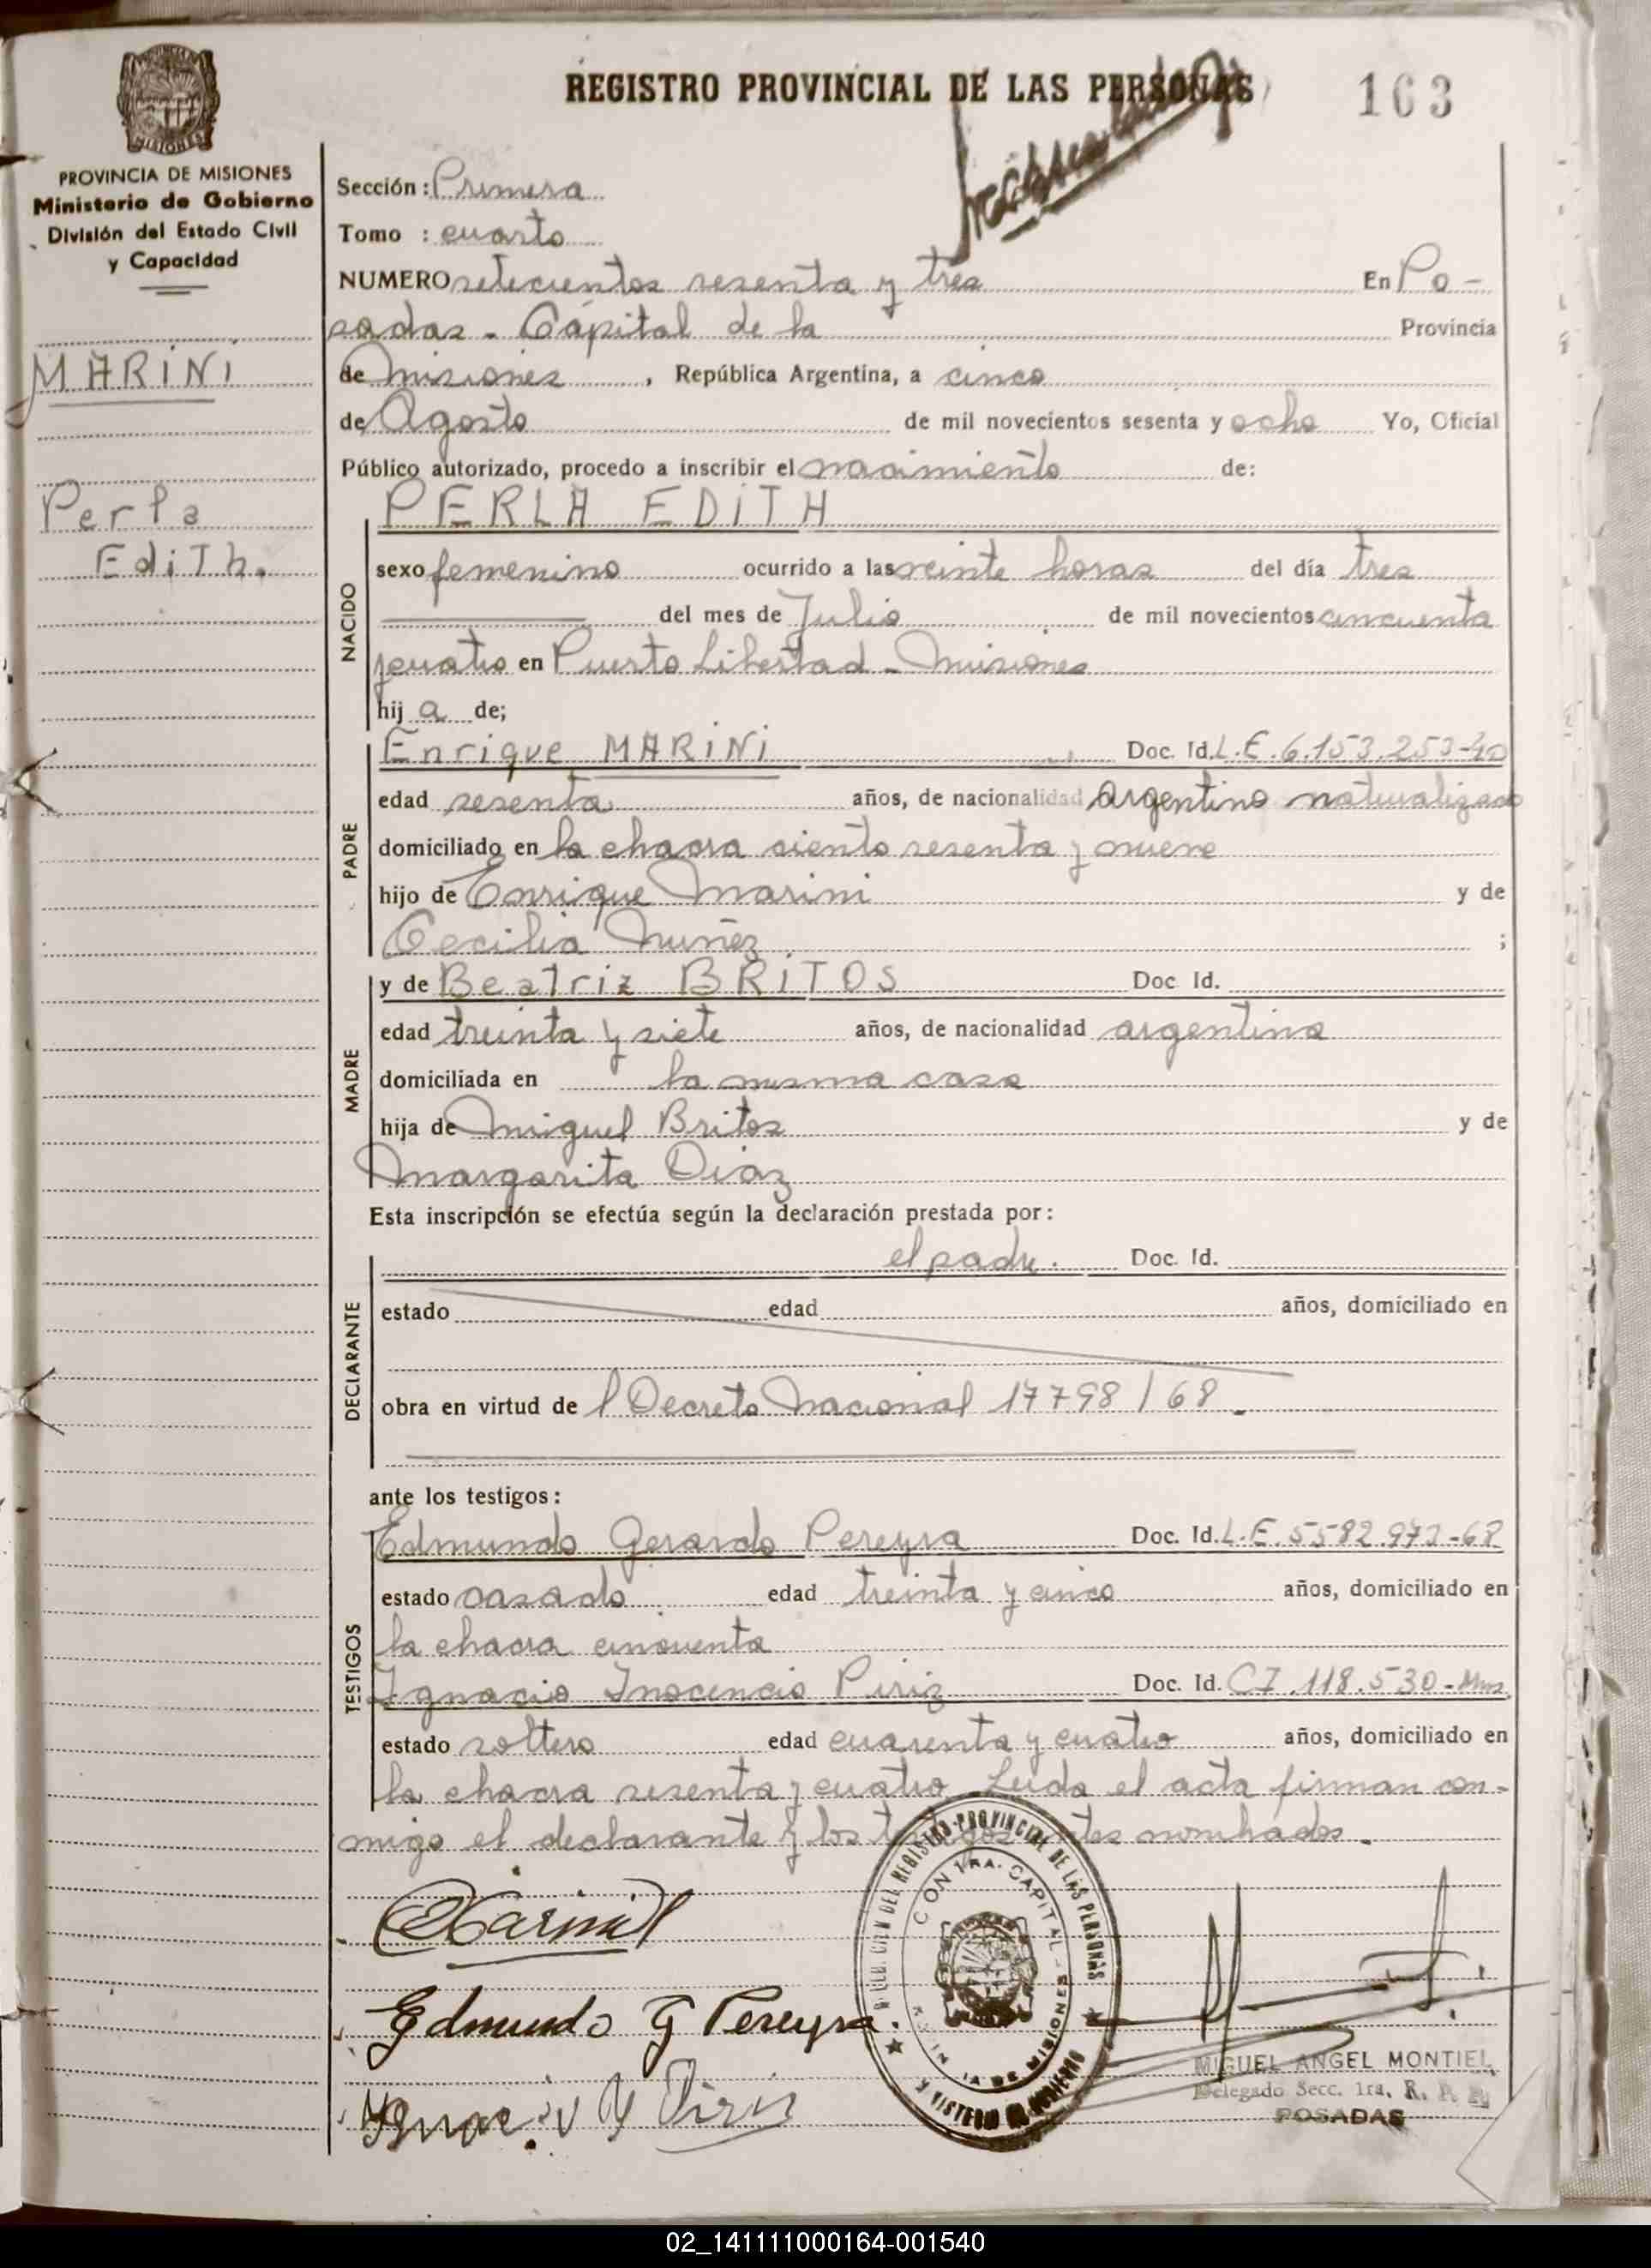 REGISTRO PROVINCIAL DE LAS PERSONAS
163
MISIONES
PROVINCIA DE MISIONES
Ministerio de Gobierno
División del Estado Civil
y Capacidad
MARINI
Perla
Edith.
Sección: Primera
Tomo : cuarto
NUMERO setecientos sesenta y tres En Po-
sadas - Capital de la Provincia
de Misiones, República Argentina, a cinco
de Agosto de mil novecientos sesenta y ocho Yo, Oficial
Público autorizado, procedo a inscribir el nacimiento de:
PERLA EDITH
NACIDO
sexo femenino ocurrido a las veinte horas del día tres
del mes de Julio de mil novecientos cincuenta
y cuatro en Puerto Libertad - Misiones
hij a de;
PADRE
Enrique MARINI Doc. Id. L.E. 6.153.253-40
edad sesenta años, de nacionalidad Argentino naturalizado
domiciliado en la chacra ciento sesenta y nueve
hijo de Enrique Marini y de
Cecilia Nuñez ;
MADRE
y de Beatriz BRITOS Doc Id.
edad treinta y siete años, de nacionalidad argentina
domiciliada en la misma casa
hija de Miguel Britos y de
Margarita Diaz
Esta inscripción se efectúa según la declaración prestada por:
DECLARANTE
el padre. Doc. Id.
estado edad años, domiciliado en
obra en virtud de l Decreto Nacional 17798/68.
ante los testigos:
TESTIGOS
Edmundo Gerardo Pereyra Doc. Id. L.E. 5582.972-68
estado casado edad treinta y cinco años, domiciliado en
la chacra cincuenta
Ignacio Inocencio Piriz Doc. Id. CI. 118.530-Mnes.
estado soltero edad cuarenta y cuatro años, domiciliado en
la chacra sesenta y cuatro. Leida el acta firman con-
migo el declarante y los testigos antes nombrados.
EMarini
Edmundo G Pereyra.
Ignacio Y Piriz
REGISTRO PROVINCIAL DE LAS PERSONAS
1RA. CAPITAL - MISIONES
MIGUEL ANGEL MONTIEL
Delegado Secc. 1ra. R. P. P.
POSADAS
02_141111000164-001540